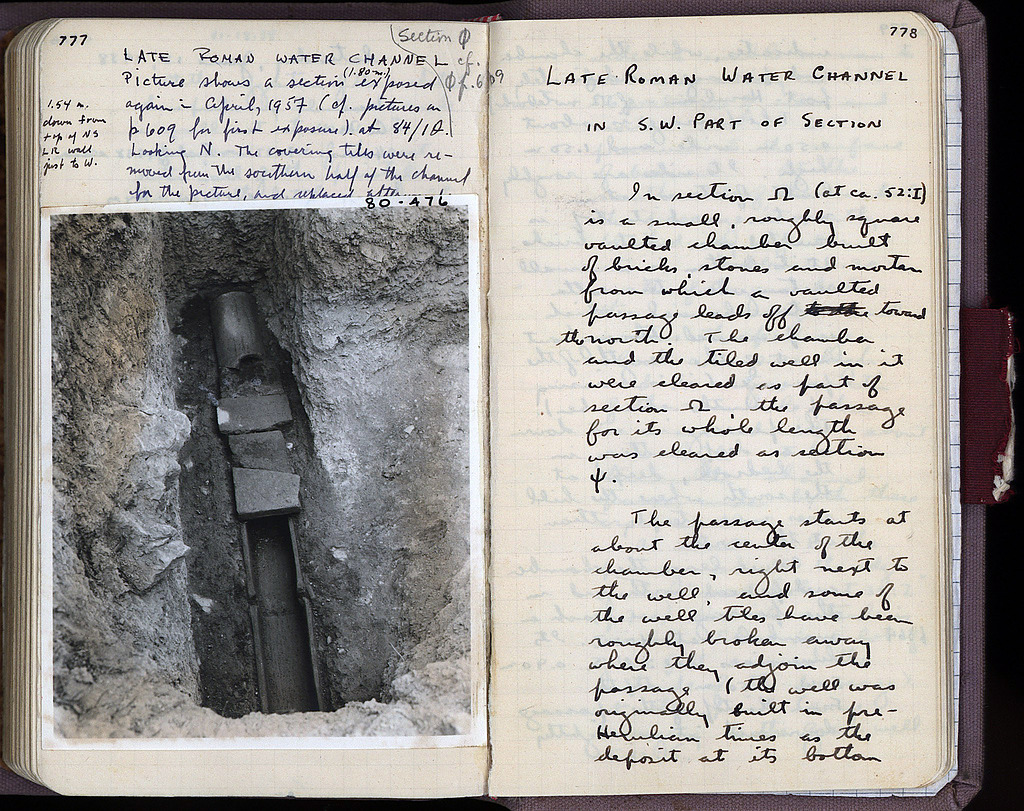 777
Section Φ
LATE ROMAN WATER CHANNEL cf.
Picture shows a section (1.80 m.) exposed Φ f. 609
again - April, 1957 (cf. pictures on
p 609 for first exposure). at 84/ΙΑ.
Looking N. The covering tiles were re-
moved from the southern half of the channel
for the picture, and replaced after
1.54 m.
down from
top of NS
LR wall
just to W.
80-476
778
LATE ROMAN WATER CHANNEL
IN S.W. PART OF SECTION
In section Ω (at ca. 52:I)
is a small, roughly square
vaulted chamber built
of bricks, stones and mortar
from which a vaulted
passage leads off toward
the north. The chamber
and the tiled well in it
were cleared as part of
section Ω, the passage
for its whole length
was cleared as section
Ψ.
The passage starts at
about the center of the
chamber, right next to
the well, and some of
the well tiles have been
roughly broken away
where they adjoin the
passage (the well was
originally built in pre-
Herulian times as the
deposit at its bottom